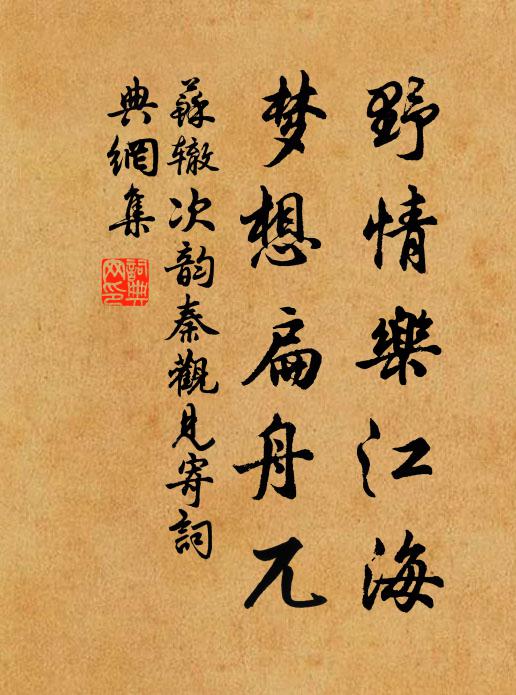 野情樂江海
梦想扁舟兀
蘇辙次韵秦觀見寄詞
典網集
詞典
网印